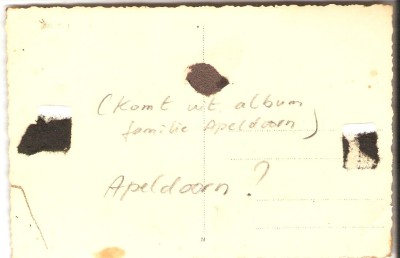 (Komt uit album
familie Apeldoorn)
Apeldoorn?